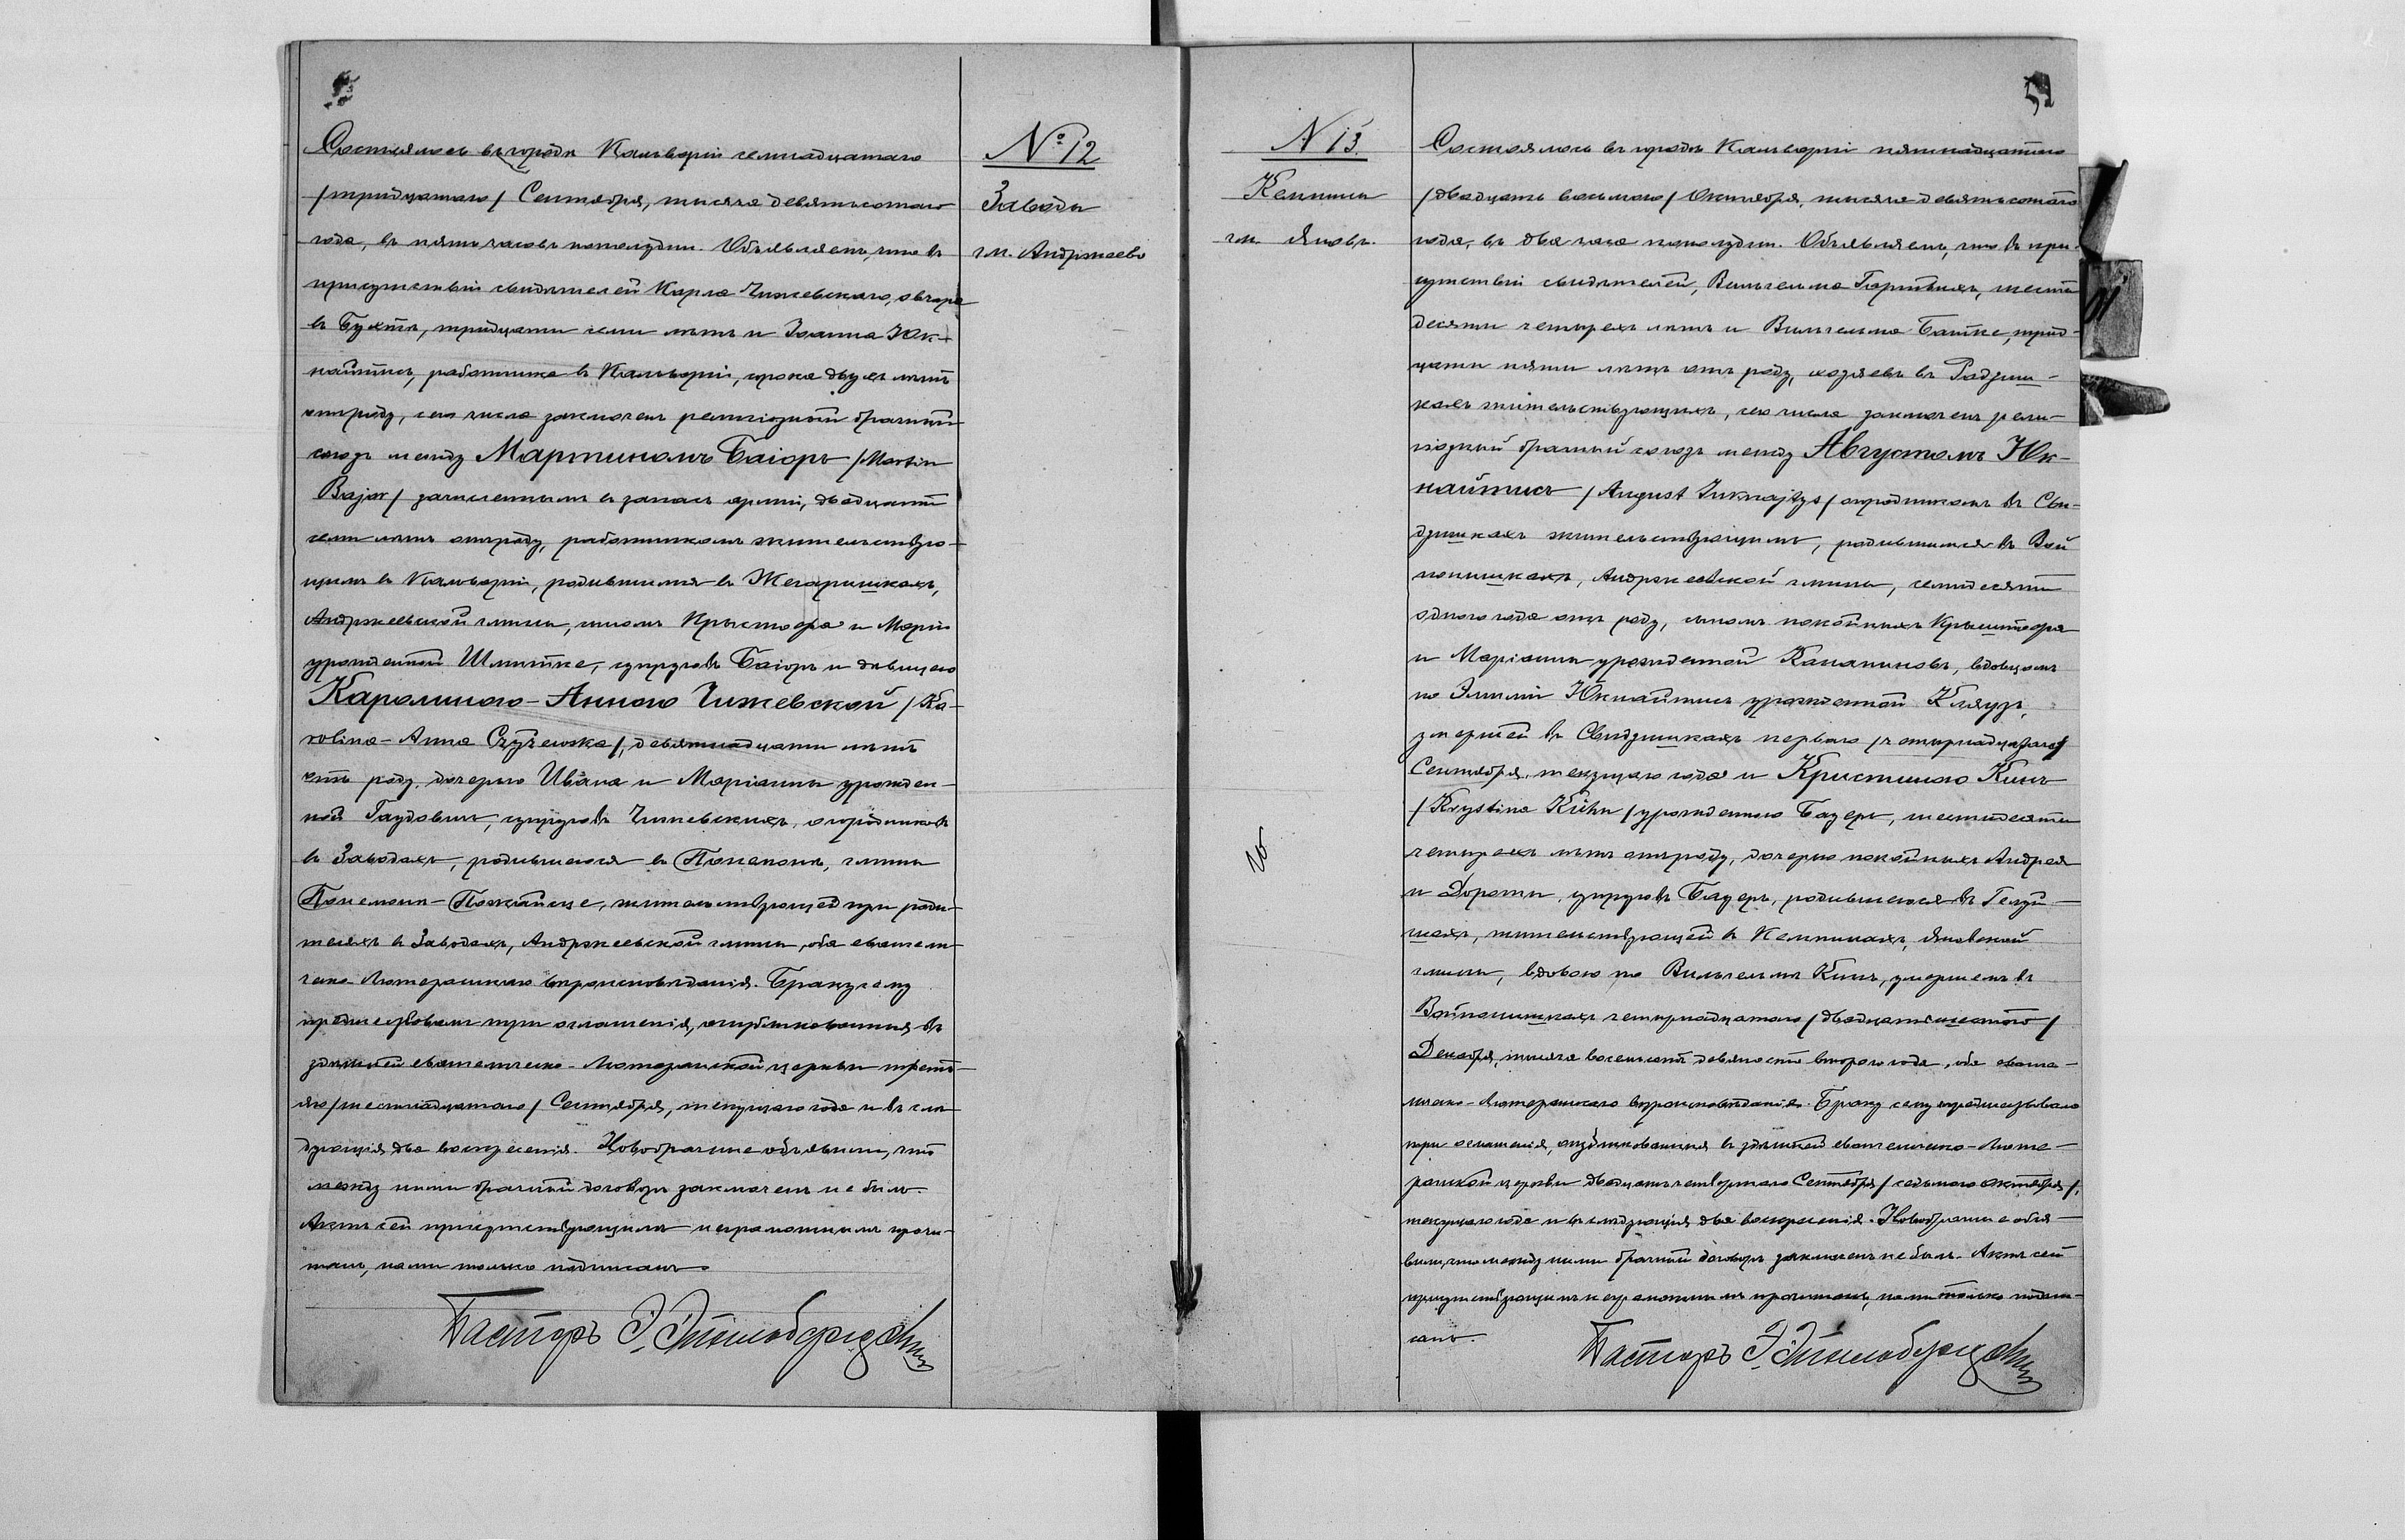 Состоялось въ городѣ Кальваріи семнадцатаго
/тридцатаго/ Сентября, тысяча девятьсотаго
года, въ пять часовъ пополудни. Объявляемъ, что въ
присутствіи свидѣтелей Карла Чижевскаго, овчаря
въ Буктѣ, тридцати семи лѣтъ и Іоанна Юк-
найтись, работника въ Кальваріи, сорока двухъ лѣтъ
отъ роду, сего числа заключенъ религіозный брачный
союзъ между Мартиномъ Баіоръ /Martin
Bajor/ зачисленнымъ въ запасъ арміи, двадцати
семи лѣтъ отъ роду, работникомъ жительствую-
щимъ въ Кальваріи, родившимся въ Жегаришкахъ,
Андржеевской гмины, сыномъ Крыстофа и Маріи
урожденной Шмитке, супруговъ Баіоръ и дѣвицею
Каролиною-Анною Чижевской /Ka-
rolina-Anna Czyżewska/, девятнадцати лѣтъ
отъ роду, дочерью Ивана и Маріанны урожден-
ной супруговъ Чижевскихъ, огородниковъ
въ Заводахъ, родившеюся въ Понемонѣ, гмины
Понемонь-Пожайсце, жительствующей при роди-
теляхъ въ Заводахъ, Андржеевской гмины, оба евангели-
ческо-Лютеранскаго вѣроисповѣданія. Браку сему
предшествовали три оглашенія, опубликованныя въ
здѣшней евангелическо-Лютеранской церкви треть-
яго /шестнадцатаго/ Сентября, текущаго года и въ слѣ-
дующія два воскресенія. Новобрачные объявили, что
между ними брачный договоръ заключенъ не былъ.
Актъ сей присутствующимъ неграмотнымъ прочи-
танъ, нами только подписанъ.
Пасторъ Э.
№ 12
Заводы
гм. Андржеево
N 13.
Кемпины
гм. Яновъ.
Состоялось въ городѣ Кальваріи пятнадцатаго
/двадцать восьмого/ Октября, тысяча девятьсотаго
года, въ два часа пополудни. Объявляемъ, что въ при-
сутствіи свидѣтелей, Вильгельма шести-
десяти четырехъ лѣтъ и Вильгельма Батке, трид-
цати пяти лѣтъ отъ роду, хозяевъ въ Радзиш-
кахъ жительствующихъ, сего числа заключенъ рели-
гіозный брачный союзъ между Августомъ Юк-
найтись /August Juknajtys/ огородникомъ въ Сви-
дзишкахъ жительствующимъ, родившимся въ Вой-
понишкахъ, Андржеевской гмины, семидесяти
одного года отъ роду, сыномъ покойныхъ Крыштофа
и Маріанны урожденной вдовцомъ
по Эмиліи Юкнайтись урожденной Кляузъ,
умершей въ Свидзишкахъ перваго /четырнадцатаго/
Сентября, текущаго года и Кристиною Кинъ
/Krystina Kühn/ урожденною Бауеръ, шестидесяти
четырехъ лѣтъ отъ роду, дочерью покойныхъ Андрея
и Дороты, супруговъ Бауеръ, родившеюся въ
шкахъ, жительствующей въ Кемпинахъ, Яновской
гмины, вдовою по Вильгельмѣ Кинъ, умершемъ въ
Войпонишкахъ четырнадцатаго /двадцать шестого/
Декабря, тысяча восемьсотъ девяносто второго года, оба еванге-
лическо-Лютеранскаго вѣроисповѣданія. Браку сему предшествовали
три оглашенія, опубликованныя въ здѣшней евангелическо-Люте-
ранской церкви двадцать четвертаго Сентября /седьмого Октября/,
текущаго года и въ слѣдующія два воскресенія. Новобрачные объя-
вили, что между ними брачный договоръ заключенъ не былъ. Актъ сей
присутствующимъ неграмотнымъ прочитанъ, нами только подпи-
санъ.
Пасторъ Э.